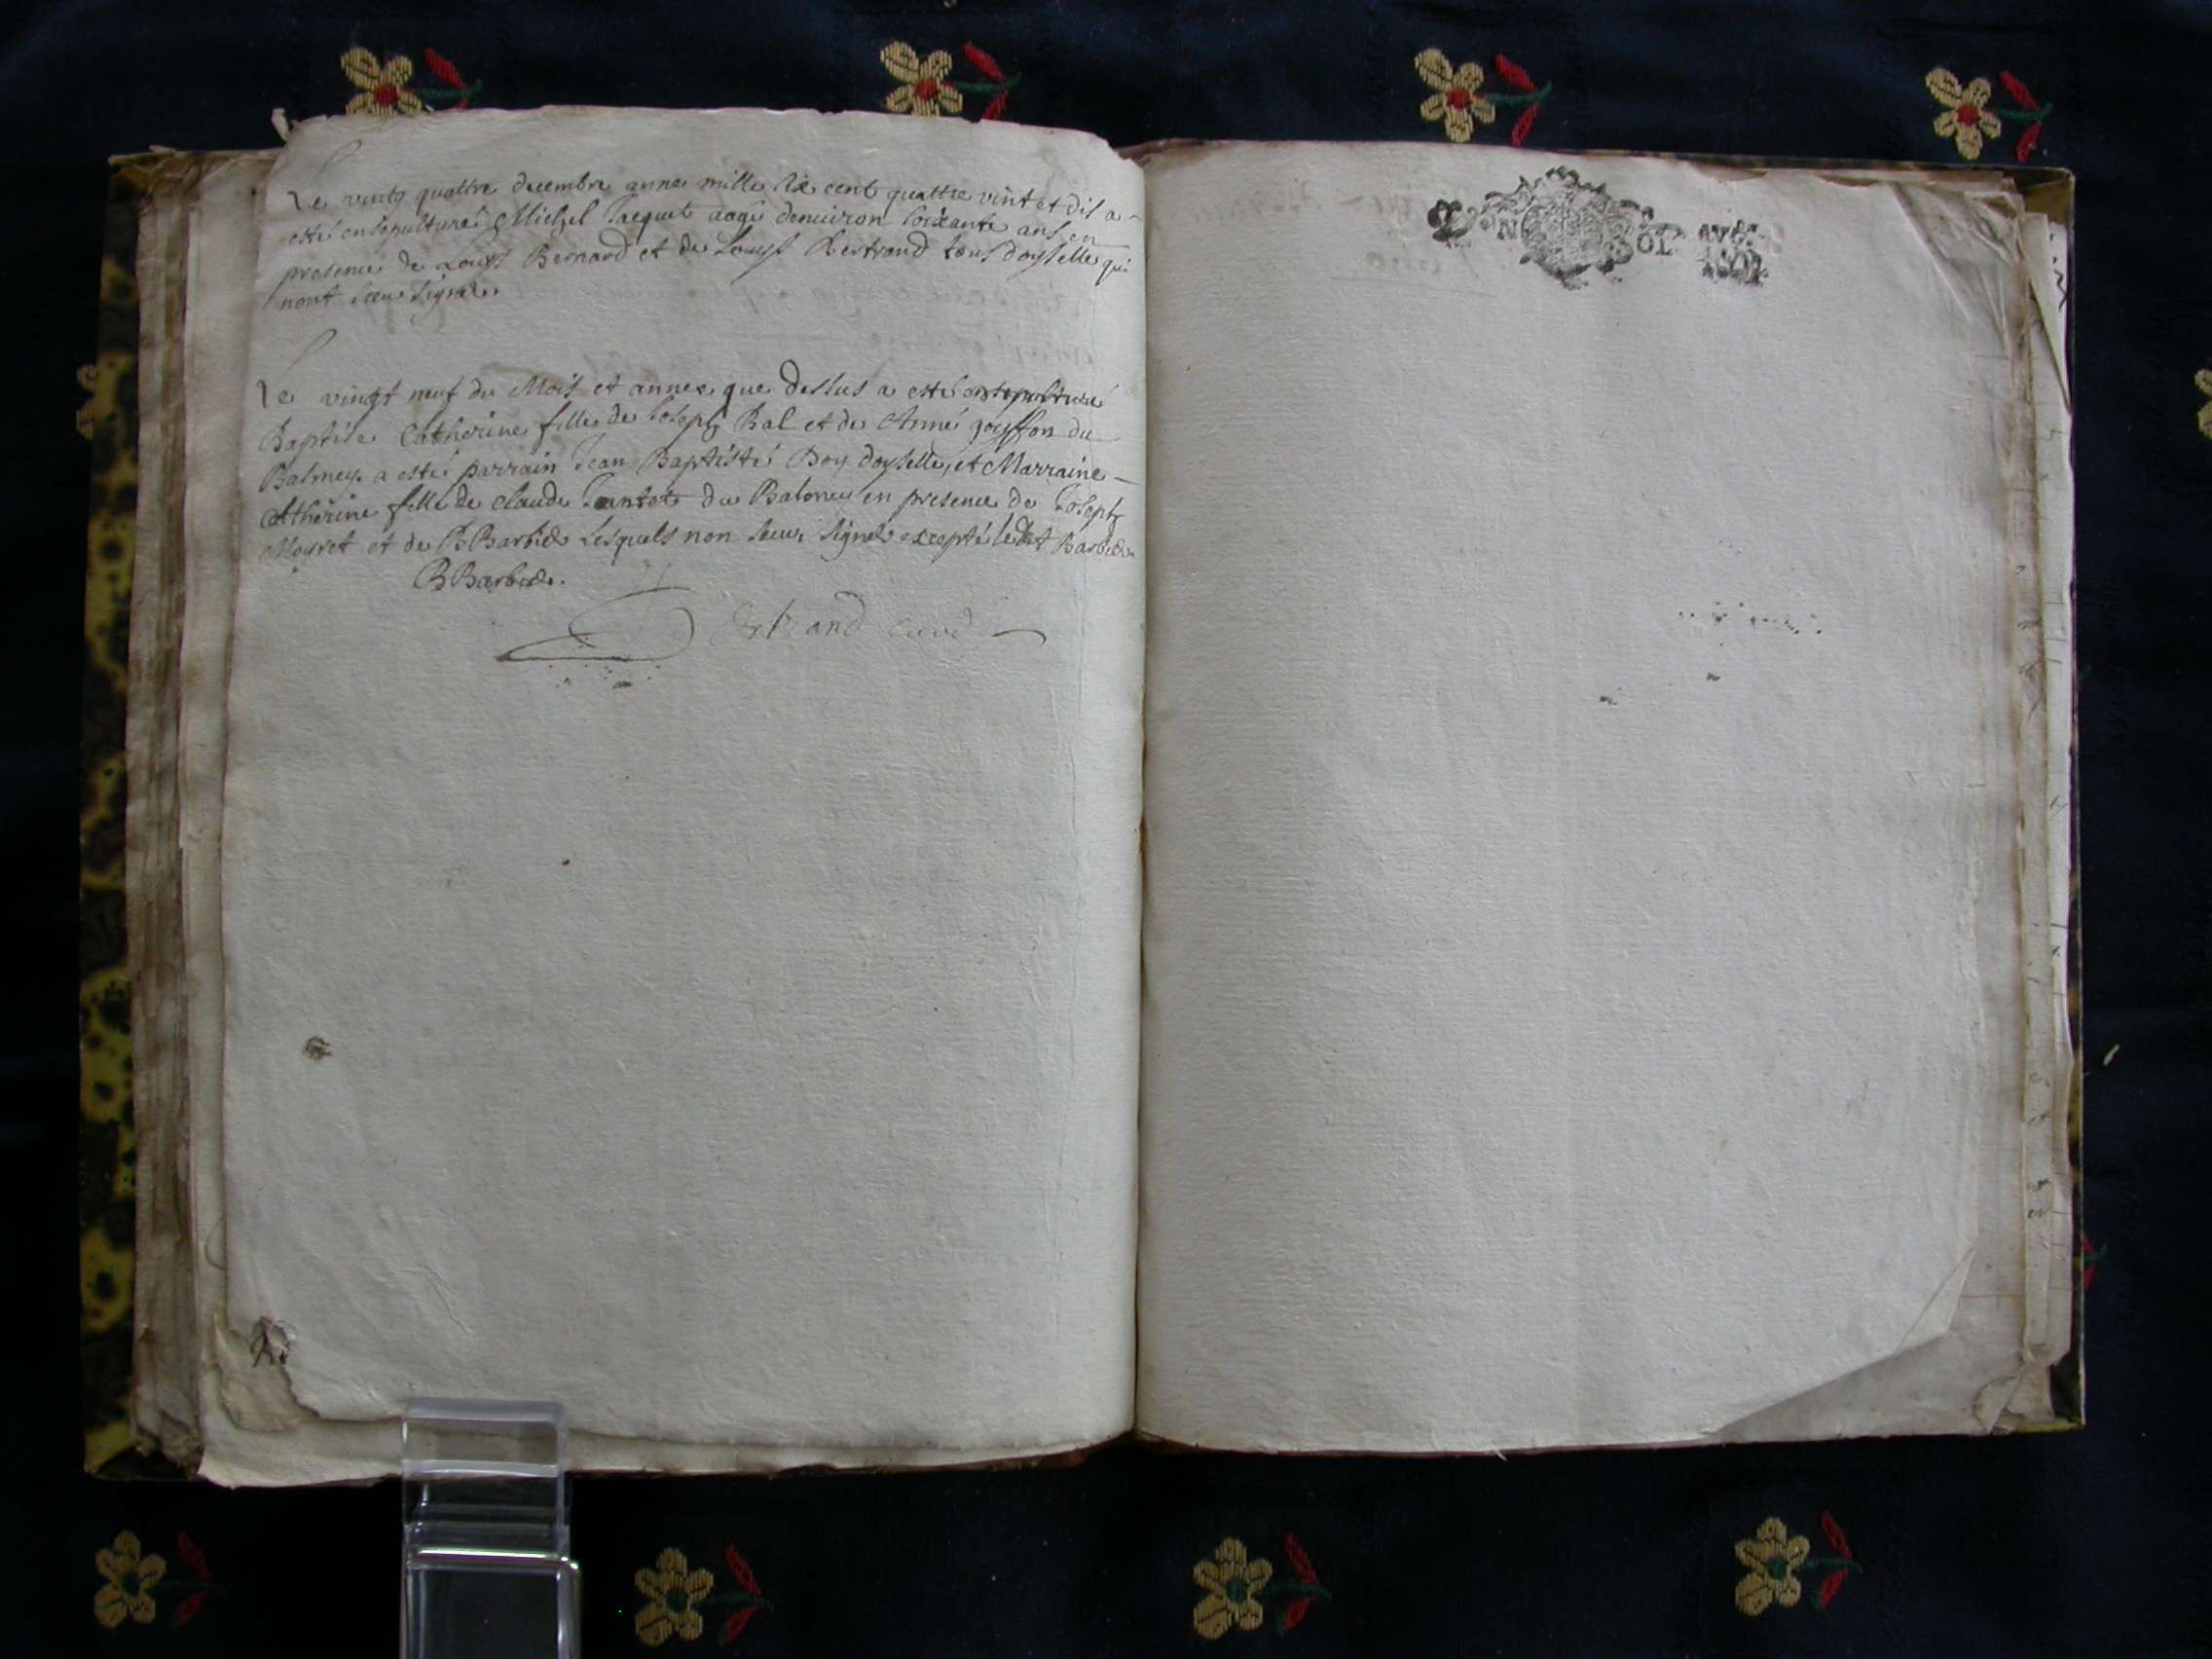 Le vintg quattre decembre annee mille six cent quattre vint et dis a
esté ensepulturé Michel Jacquet aagé denuiron soixante ans en
presence de Louys Bernard et de Louys Bertrand tous doyselle qui
nont sceu signer.
Le vingt neuf du Mois et annee que dessus a esté ensepulturé
Baptisee Catherine fille de Joseph Bal et de Anne gouffon du
Balmey. a esté parrain Jean Baptisté Boy doyselle, et Marraine
Catherine fille de claude du Balmey en presence de Joseph
Moyret et de B Barbier Lesquels non sceu signer excepté ledit Barbier
B Barbier.
Bertrand curé